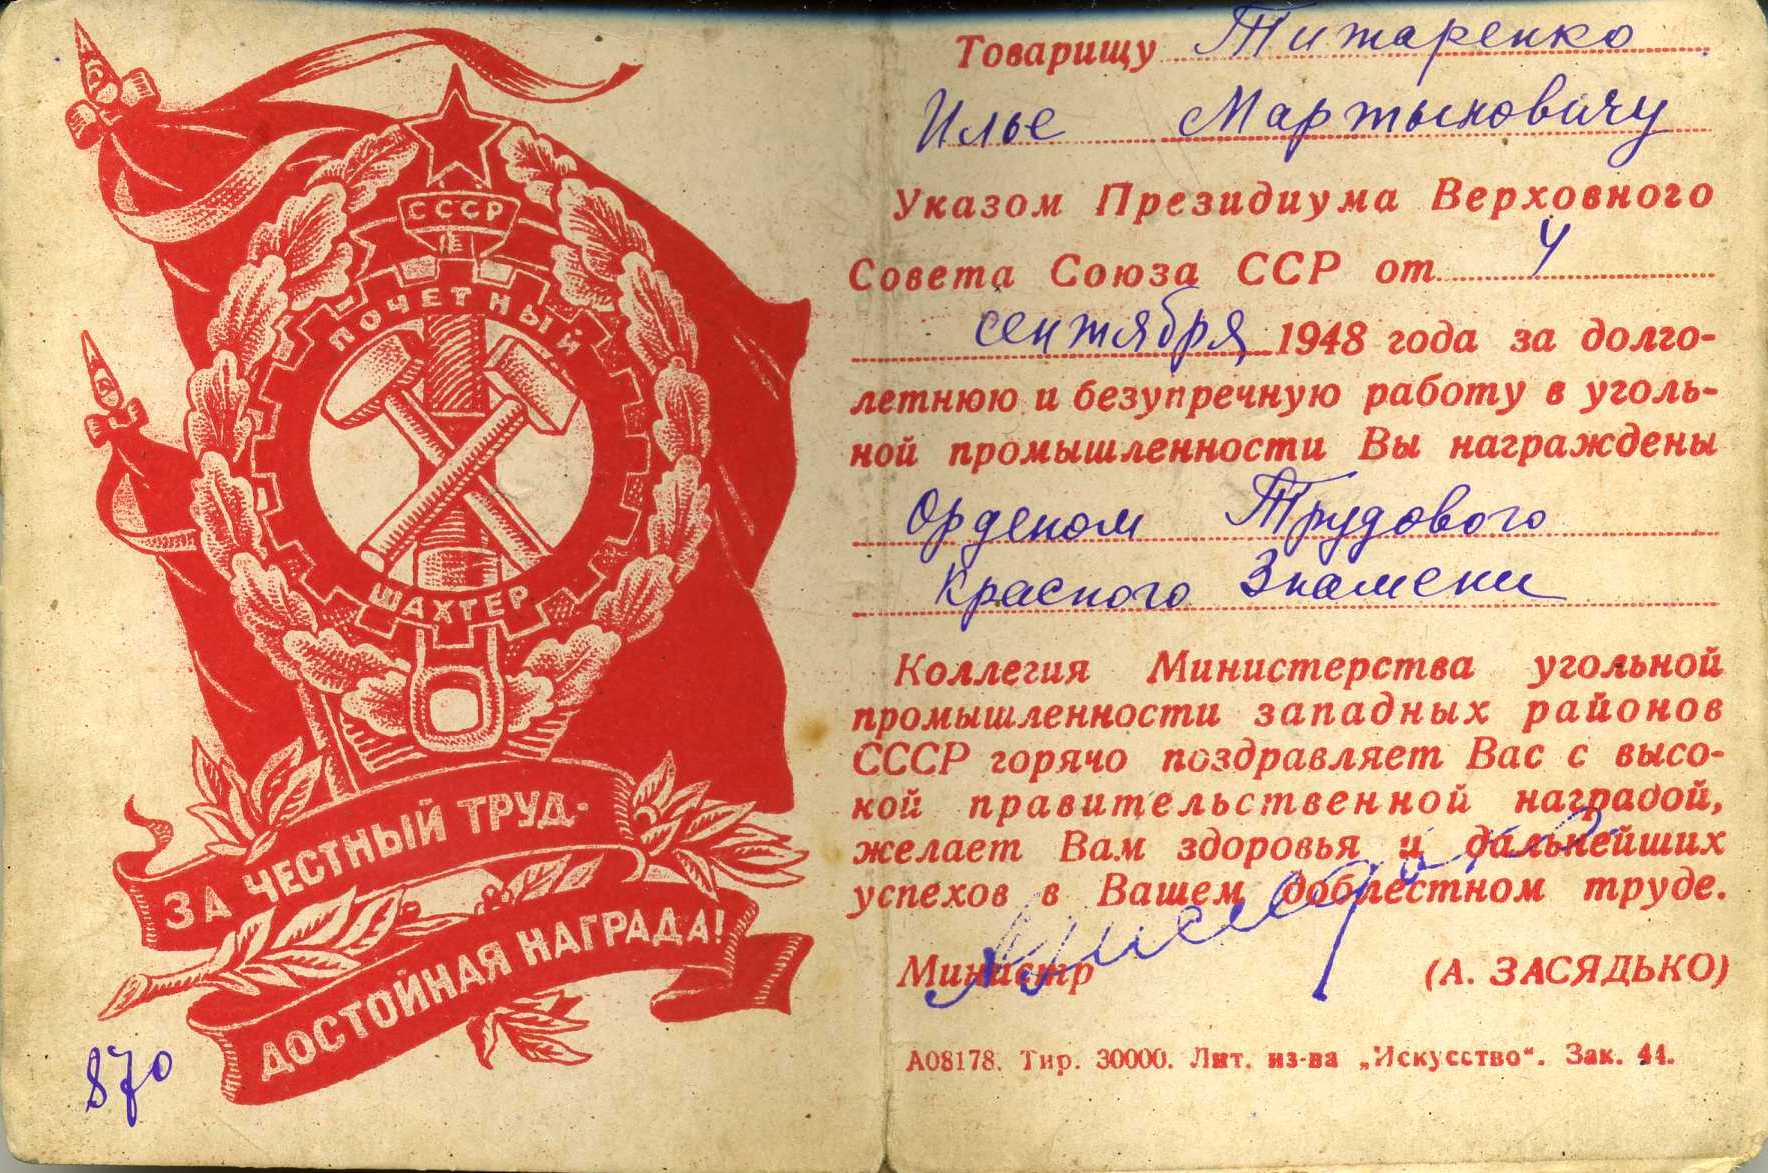 СССР
ПОЧЕТНЫЙ
ШАХТЕР
ЗА ЧЕСТНЫЙ ТРУД-
ДОСТОЙНАЯ НАГРАДА!
870
Товарищу Тижаренко
Илье Мартыновичу
Указом Президиума Верховного
Совета Союза ССР от 4
сентября 1948 года за долго-
летнюю и безупречную работу в уголь-
ной промышленности Вы награждены
Орденом Трудового
Красного Знамени
Коллегия Министерства угольной
промышленности западных районов
СССР горячо поздравляет Вас с высо-
кой правительственной наградой,
желает Вам здоровья и дальнейших
успехов в Вашем доблестном труде.
Министр (А. ЗАСЯДЬКО)
А08178. Тир. 30000. Лит. из-ва „Искусство“. Зак. 44.